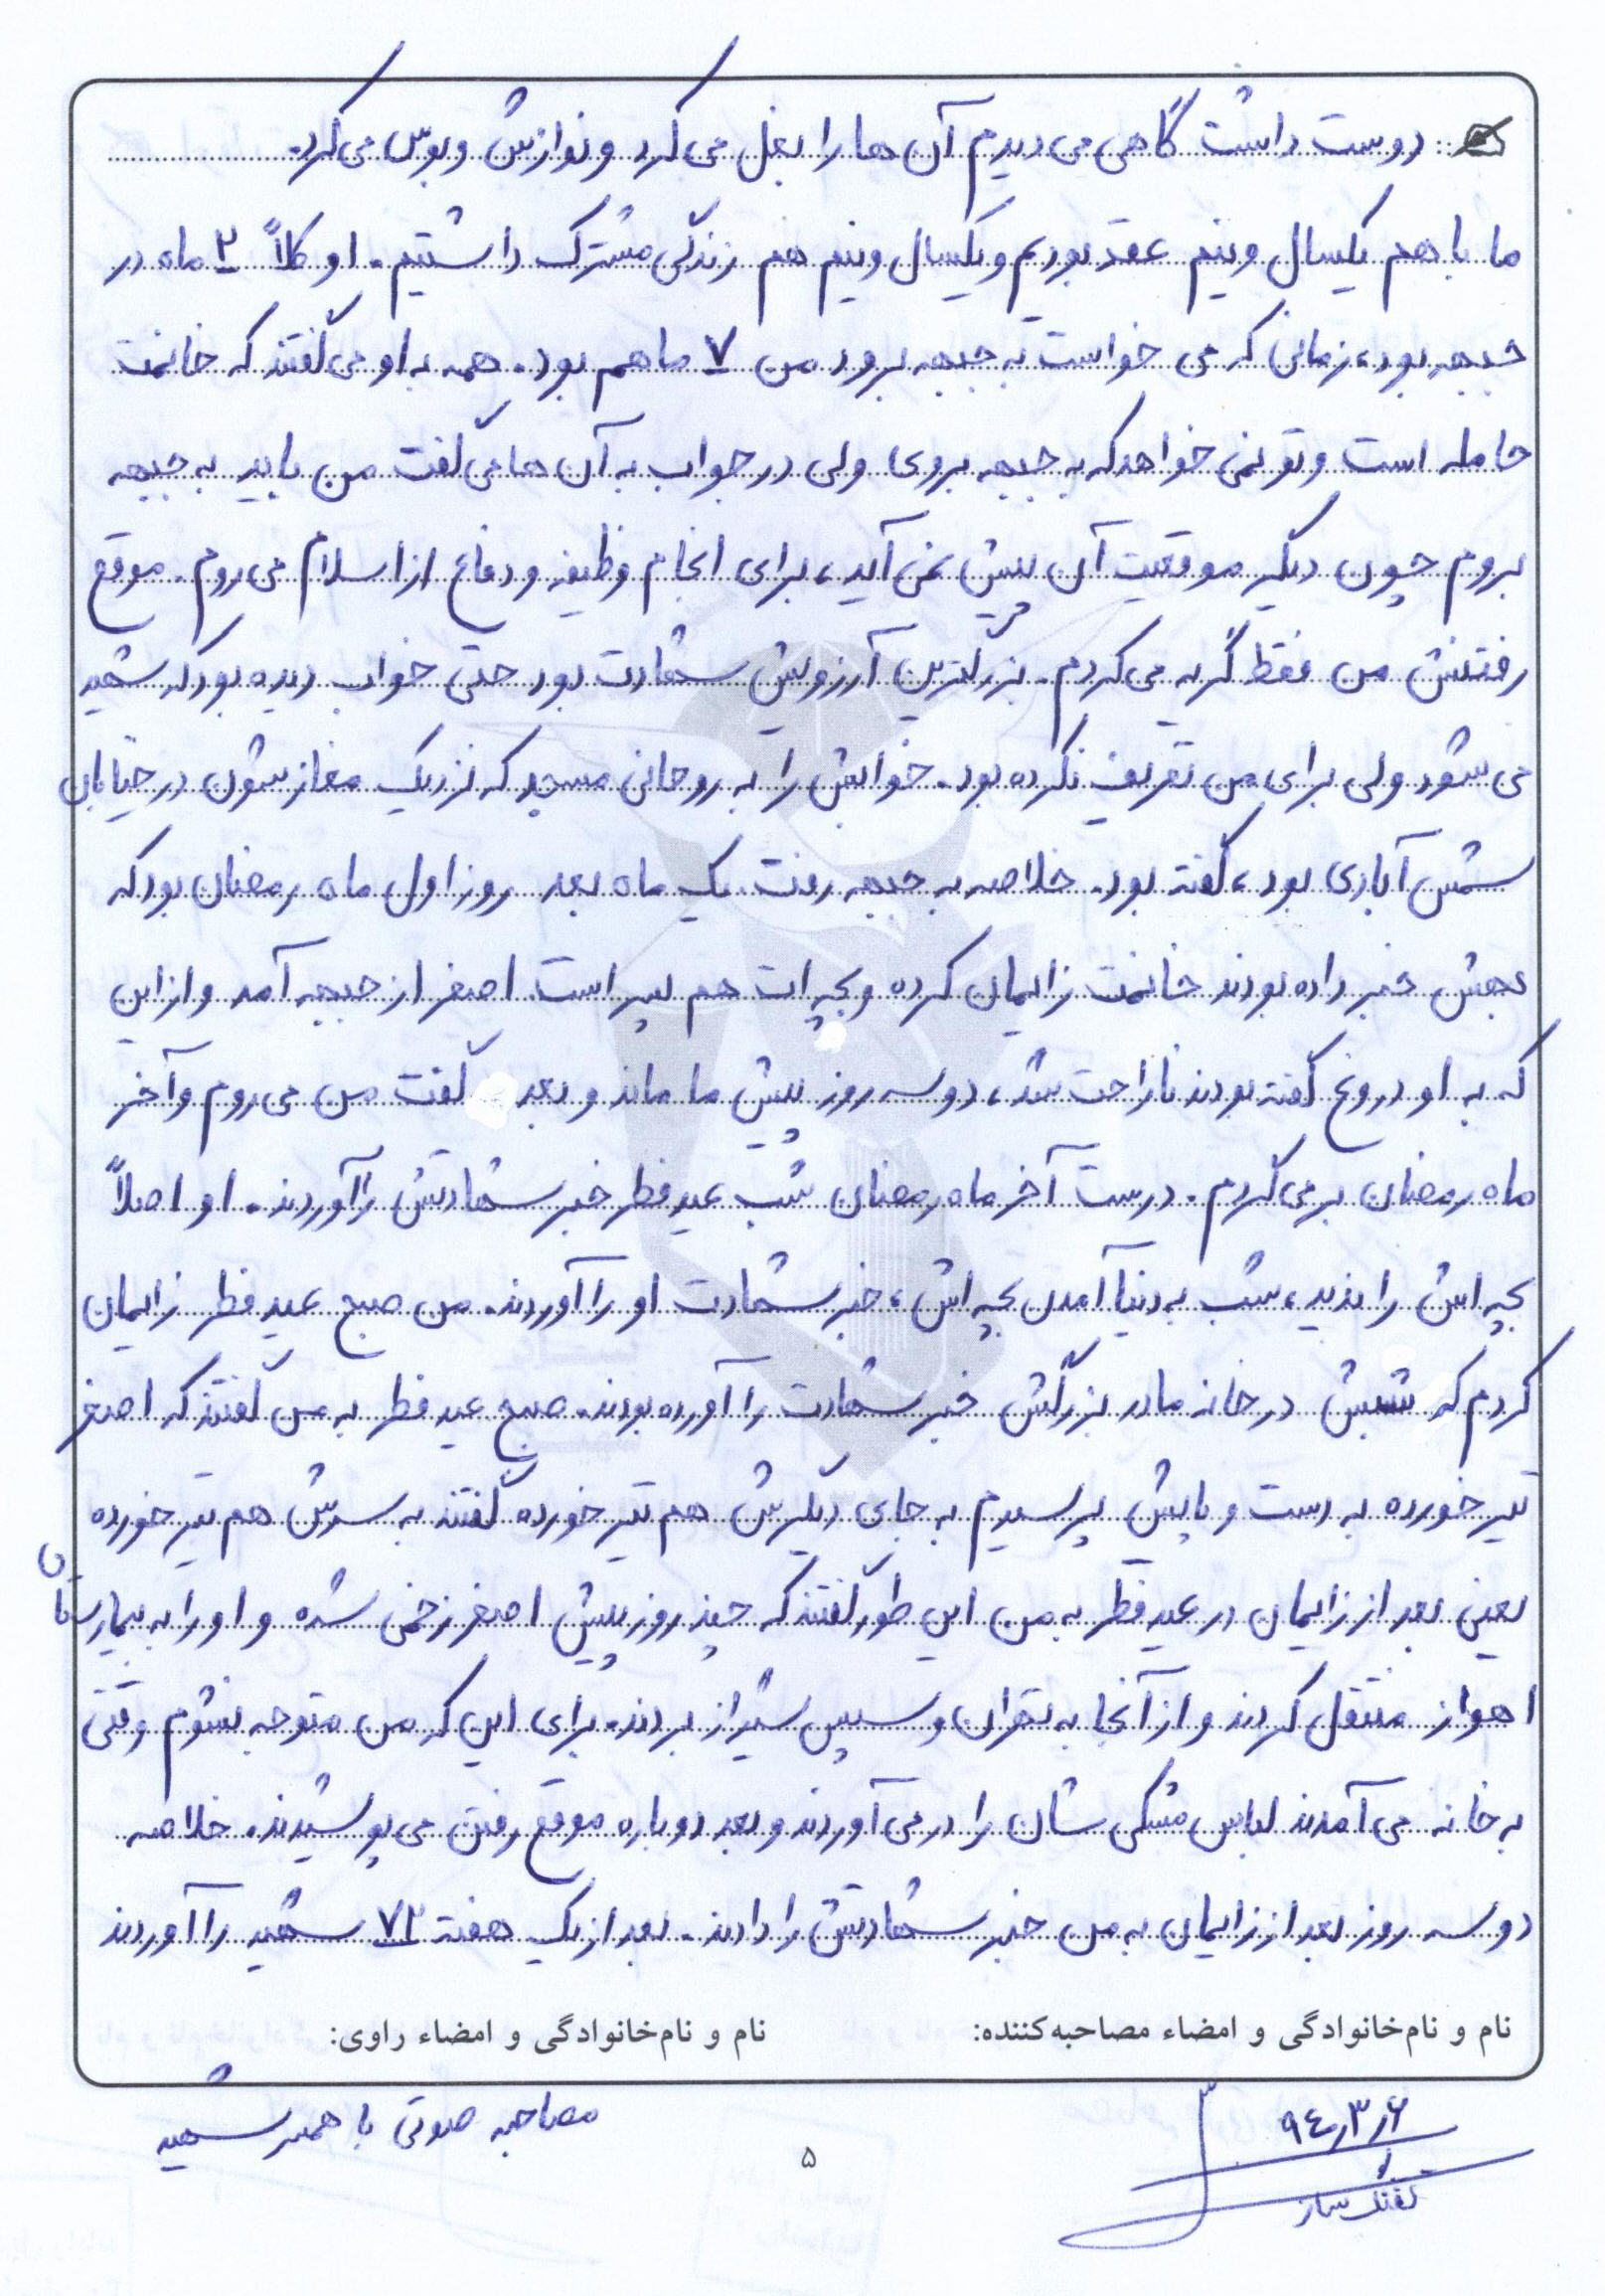 دوست داشت گاهی می دیدم آن ها را بغل می کرد و نوازش و بوس می کرد.
ما با هم یکسال و نیم عقد بودیم و یکسال و نیم هم زندگی مشترک داشتیم. او کلاً ۲ ماه در
جبهه بود، زمانی که می خواست به جبهه برود من ۷ ماهم بود. همه به او می گفتند که خانمت
حامله است و تو نمی خواهد که به جبهه بروی ولی در جواب به آن ها می گفت من باید به جبهه
بروم چون دیگر موقعیت آن پیش نمی آید، برای انجام وظیفه و دفاع از اسلام می روم. موقع
رفتنش من فقط گریه می کردم. بزرگترین آرزویش شهادت بود حتی خواب دیده بود که شهید
می شود ولی برای من تعریف نکرده بود. خوابش را به روحانی مسجد که نزدیک مغازشون در خیابان
شمس آبادی بود، گفته بود. خلاصه به جبهه رفت یک ماه بعد روز اول ماه رمضان بود که
بهش خبر داده بودند خانمت زایمان کرده و بچه ات هم پسر است. اصغر از جبهه آمد و از این
که به او دروغ گفته بودند ناراحت شد، دو سه روز پیش ما ماند و بعد گفت من می روم و آخر
ماه رمضان بر می گردم. درست آخر ماه رمضان شب عید فطر خبر شهادتش را آوردند. او اصلاً
بچه اش را ندید، شب به دنیا آمدن بچه اش، خبر شهادت او را آوردند. من صبح عید فطر زایمان
کردم که شبش در خانه مادر بزرگش خبر شهادت را آورده بودند. صبح عید فطر به من گفتند که اصغر
تیر خورده به دست و پایش پرسیدم به جای دیگرش هم تیر خورده گفتند به سرش هم تیر خورده
یعنی بعد از زایمان در عید فطر به من این طور گفتند که چند روز پیش اصغر زخمی شده و او را به بیمارستان
اهواز منتقل کردند و از آنجا به تهران و سپس شیراز بردند. برای این که من متوجه نشوم وقتی
به خانه می آمدند لباس مشکی شان را در می آوردند و بعد دوباره موقع رفتن می پوشیدند. خلاصه
دو سه روز بعد از زایمان به من خبر شهادتش را دادند. بعد از یک هفته ۷۲ شهید را آوردند
نام و نام‌خانوادگی و امضاء مصاحبه‌کننده: نام و نام‌خانوادگی و امضاء راوی:
۹۴/۳/۶ مصاحبه صوتی با همسر شهید
تفنگ ساز
۵